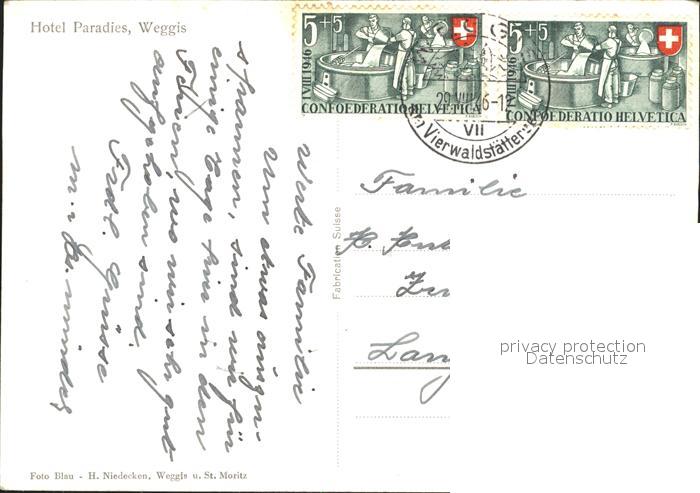 Hotel Paradies, Weggis
5+5
I VIII 1946
CONFOEDERATIO HELVETICA
5+5
I VIII 1946
CONFOEDERATIO HELVETICA
VII
Vierwaldstätter
Werte Familie
Um etwas auszu-
spannen, sind wir für
einige Tage hier in den
Ferien, wo wir sehr gut
aufgehoben sind.
Frdl. Grüsse
Familie
Fabrication Suisse
privacy protection
Datenschutz
Foto Blau - H. Niedecken, Weggis u. St. Moritz